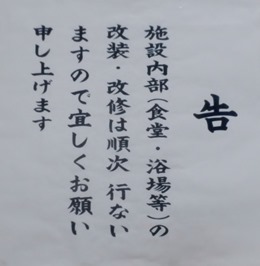 告
施設内部(食堂・浴場等)の
改装・改修は順次 行ない
ますので宜しくお願い
申し上げます